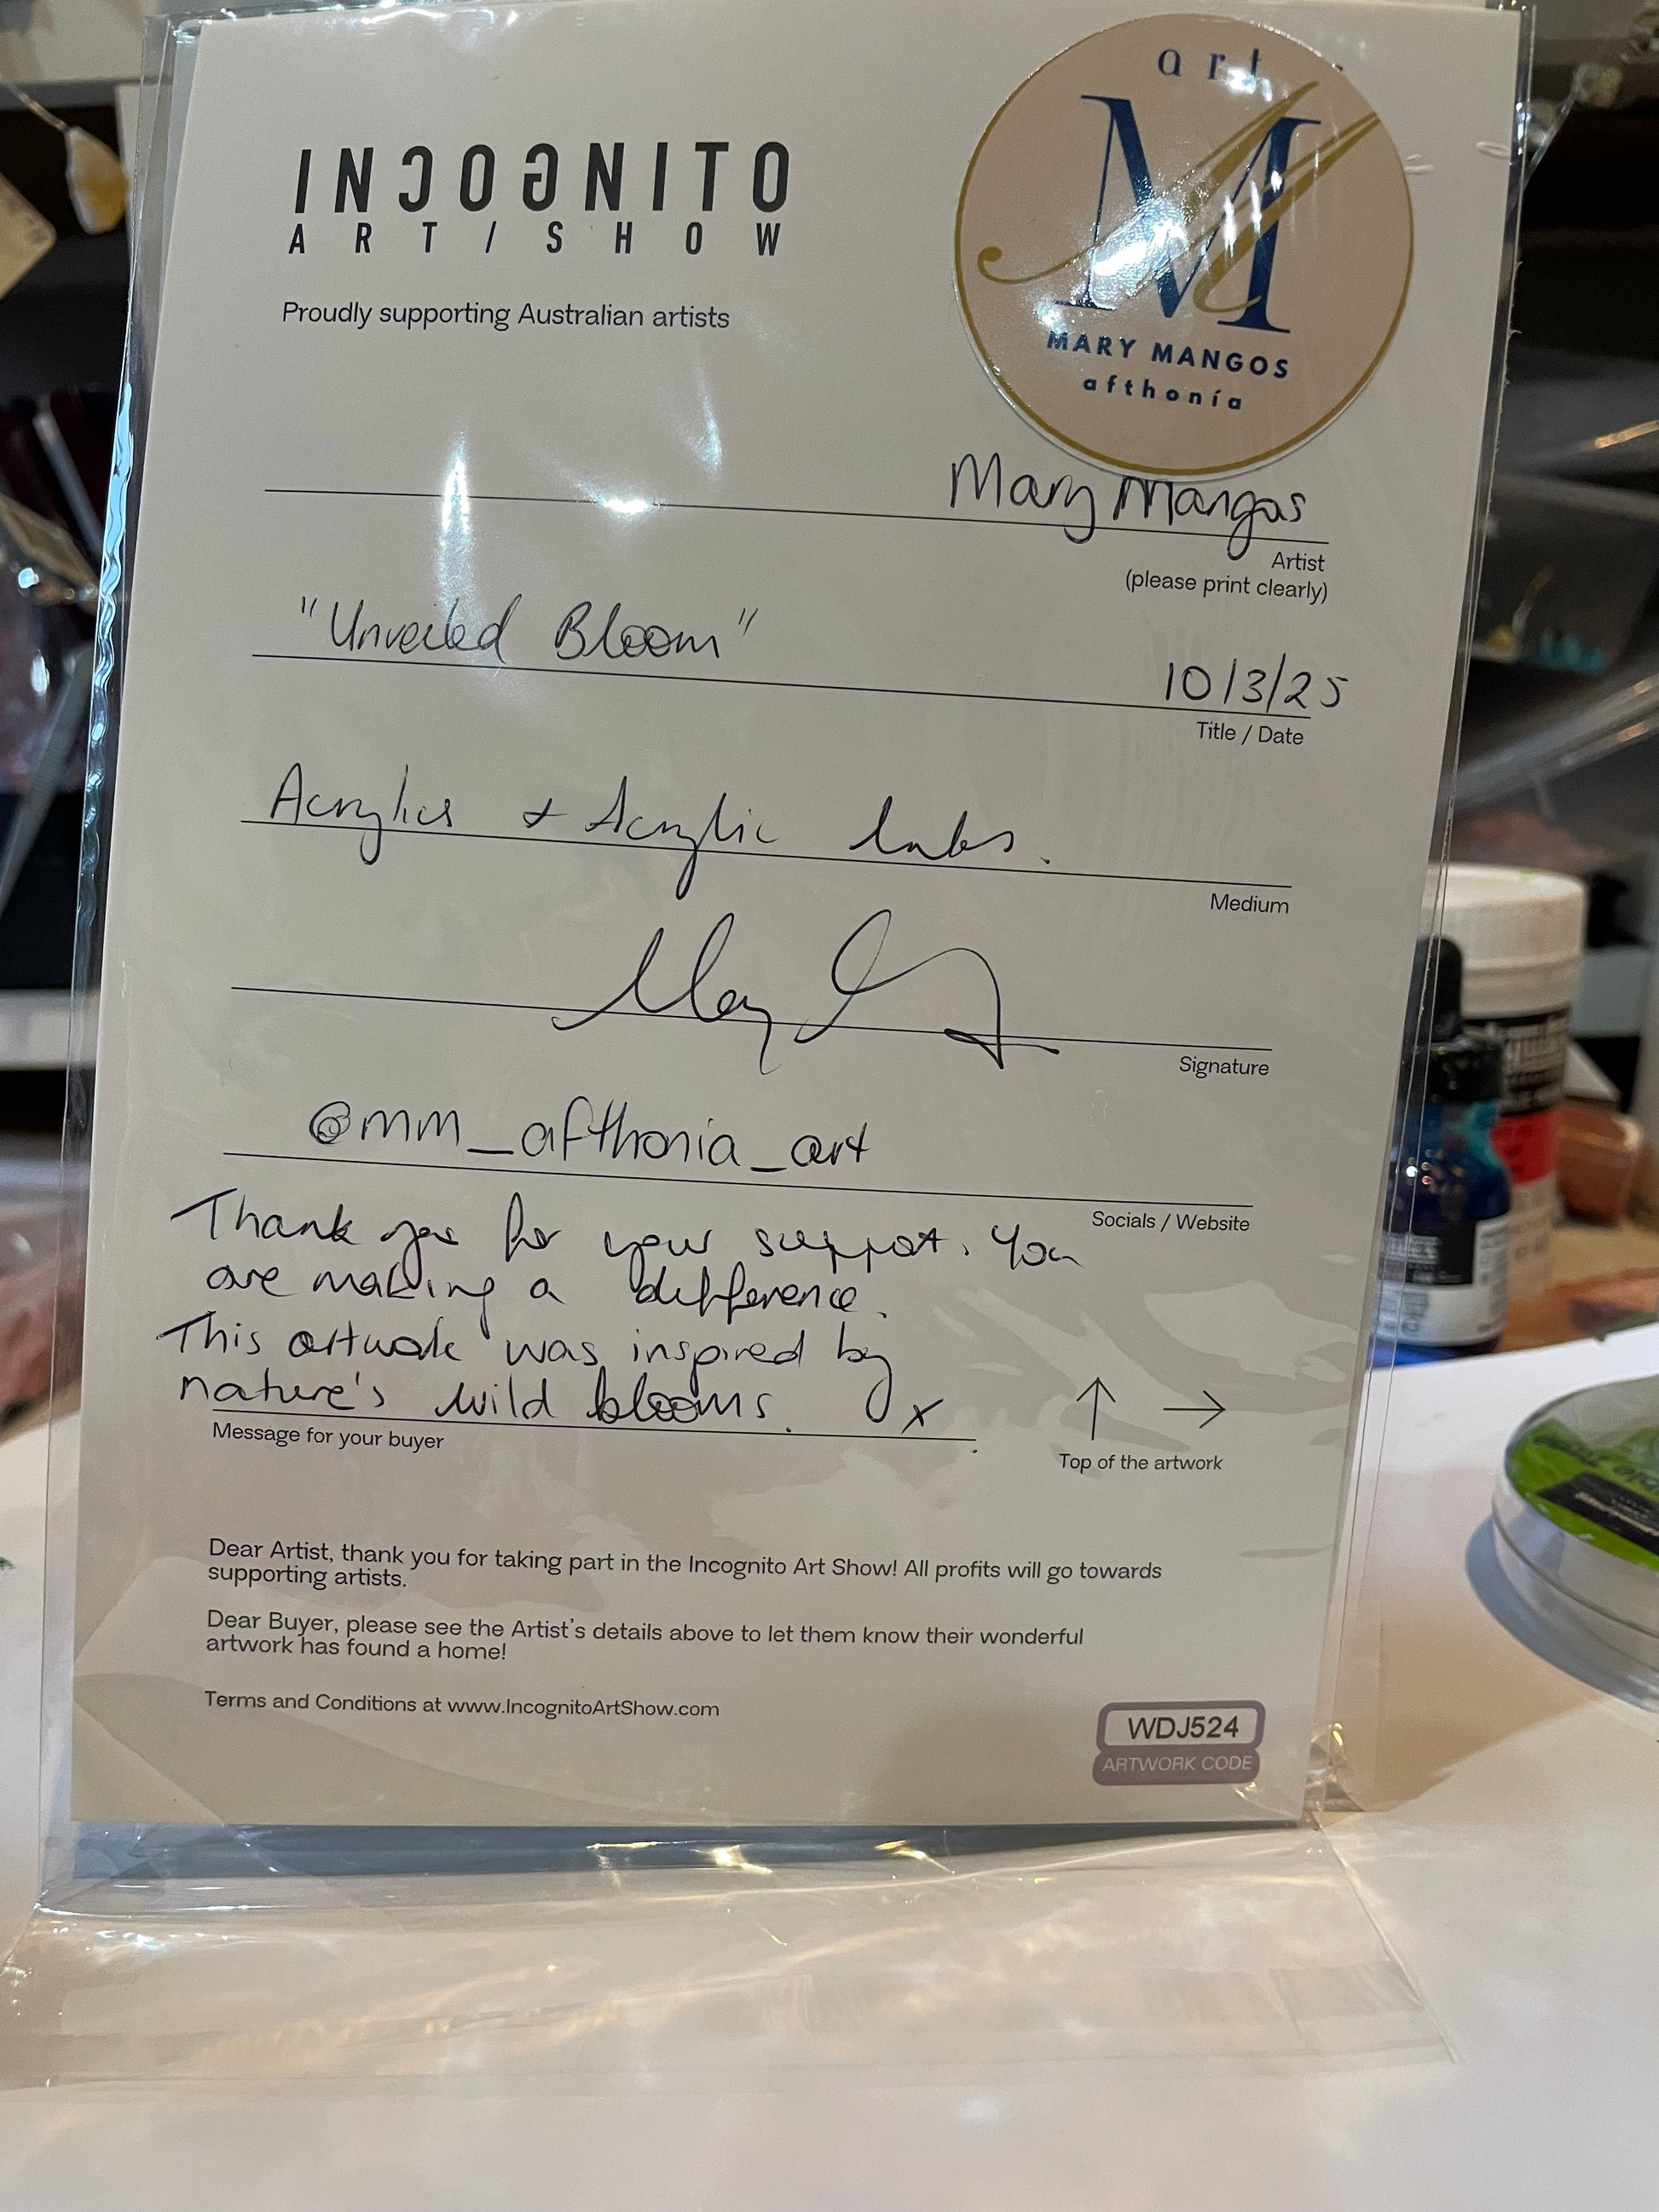 INCOGNITO
ART/SHOW
Proudly supporting Australian artists
art
M
MARY MANGOS
afthonía
Mary Mangos
Artist
(please print clearly)
"Unveiled Bloom"
10/3/25
Title / Date
Acrylics + Acrylic Inks.
Medium
Signature
@mm_afthonia_art
Socials / Website
Thank you for your support. You
are making a difference.
This artwork was inspired by
nature's wild blooms. x
Message for your buyer
↑ →
Top of the artwork
Dear Artist, thank you for taking part in the Incognito Art Show! All profits will go towards
supporting artists.
Dear Buyer, please see the Artist's details above to let them know their wonderful
artwork has found a home!
Terms and Conditions at www.IncognitoArtShow.com
WDJ524
ARTWORK CODE